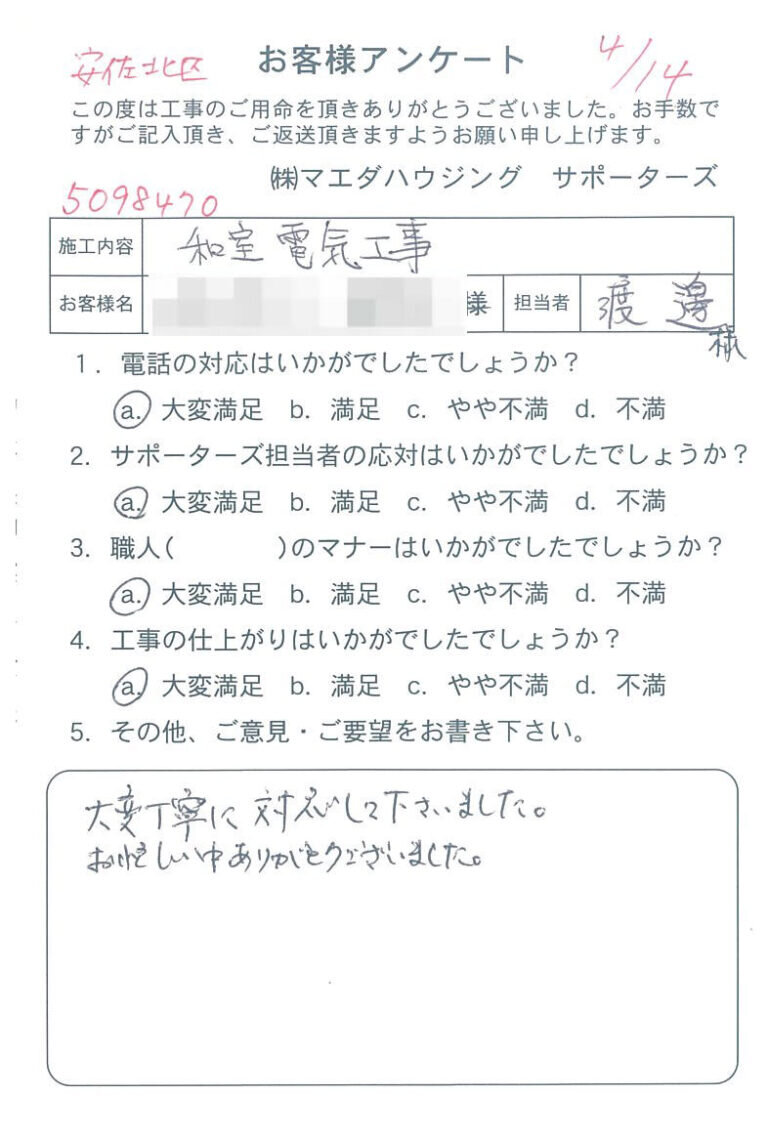 安佐北区 お客様アンケート 4/14
この度は工事のご用命を頂きありがとうございました。お手数で
すがご記入頂き、ご返送頂きますようお願い申し上げます。
㈱マエダハウジング サポーターズ
5098470
施工内容 和室電気工事
お客様名 様 担当者 渡邊様
1. 電話の対応はいかがでしたでしょうか?
a. 大変満足 b. 満足 c. やや不満 d. 不満
2. サポーターズ担当者の応対はいかがでしたでしょうか?
a. 大変満足 b. 満足 c. やや不満 d. 不満
3. 職人( )のマナーはいかがでしたでしょうか?
a. 大変満足 b. 満足 c. やや不満 d. 不満
4. 工事の仕上がりはいかがでしたでしょうか?
a. 大変満足 b. 満足 c. やや不満 d. 不満
5. その他、ご意見・ご要望をお書き下さい。
大変丁寧に対応して下さいました。
お忙しい中ありがとうございました。